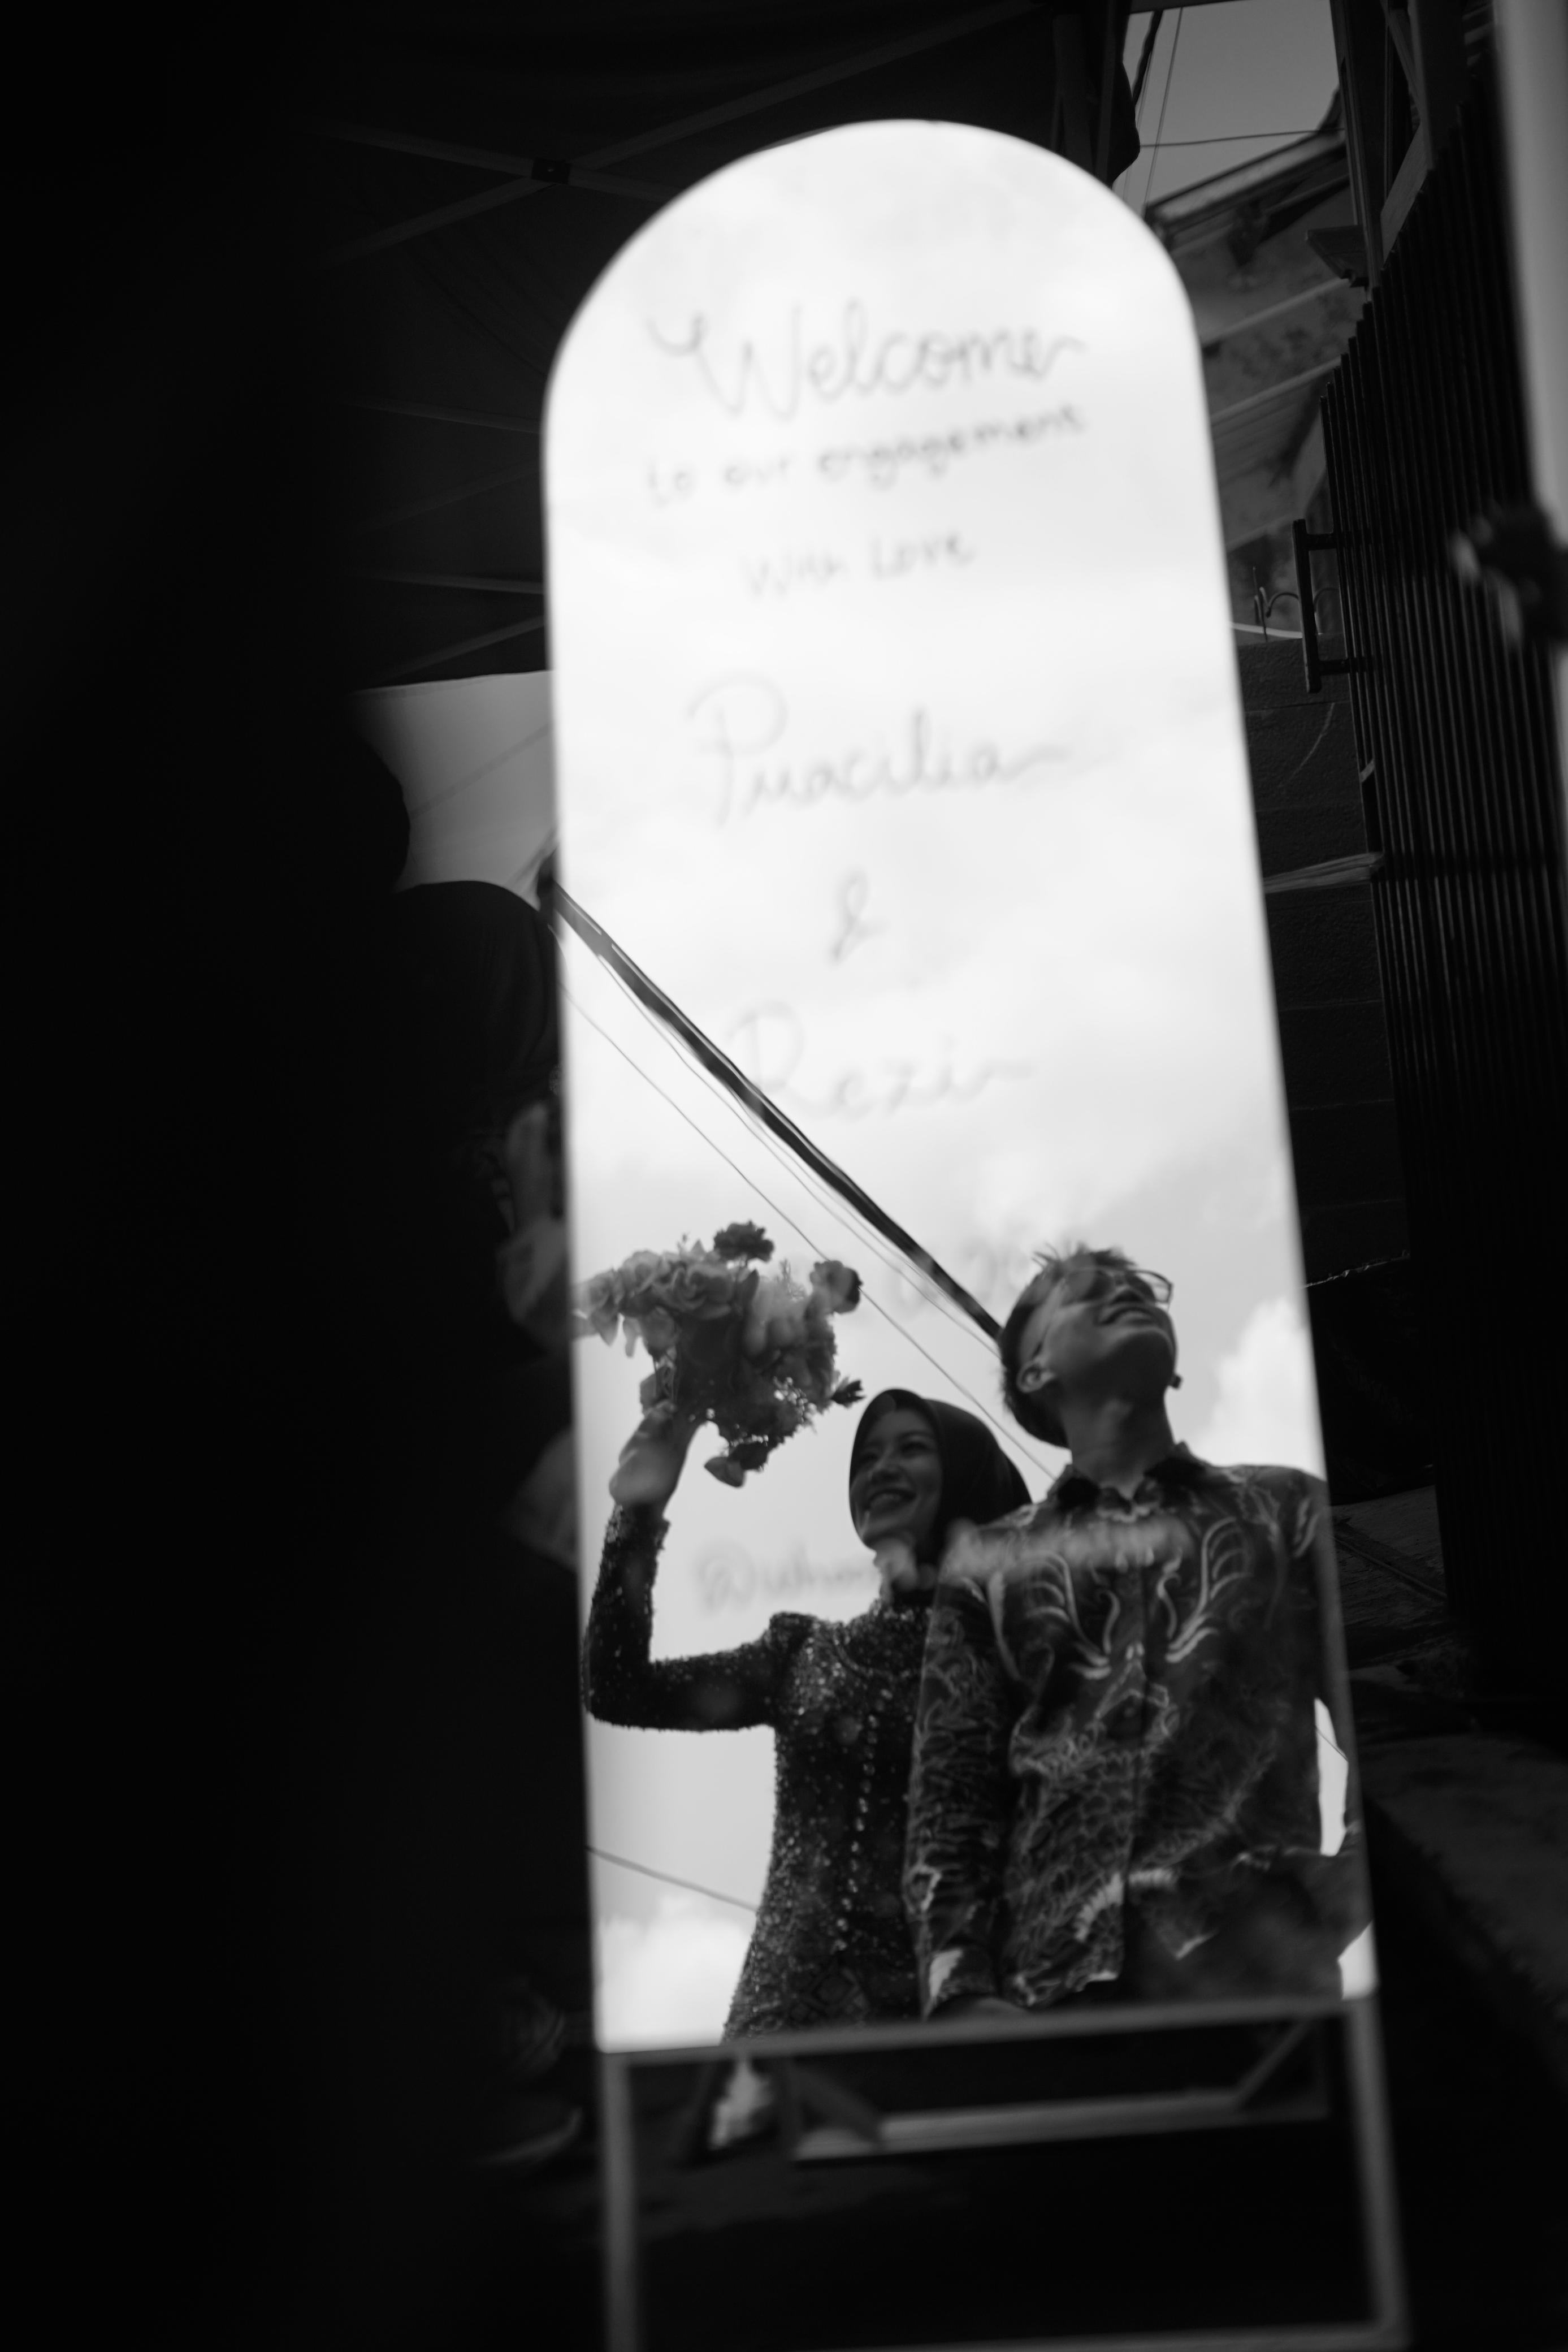 Welcome
to our engagement
With Love
Puacilia
&
Rezi